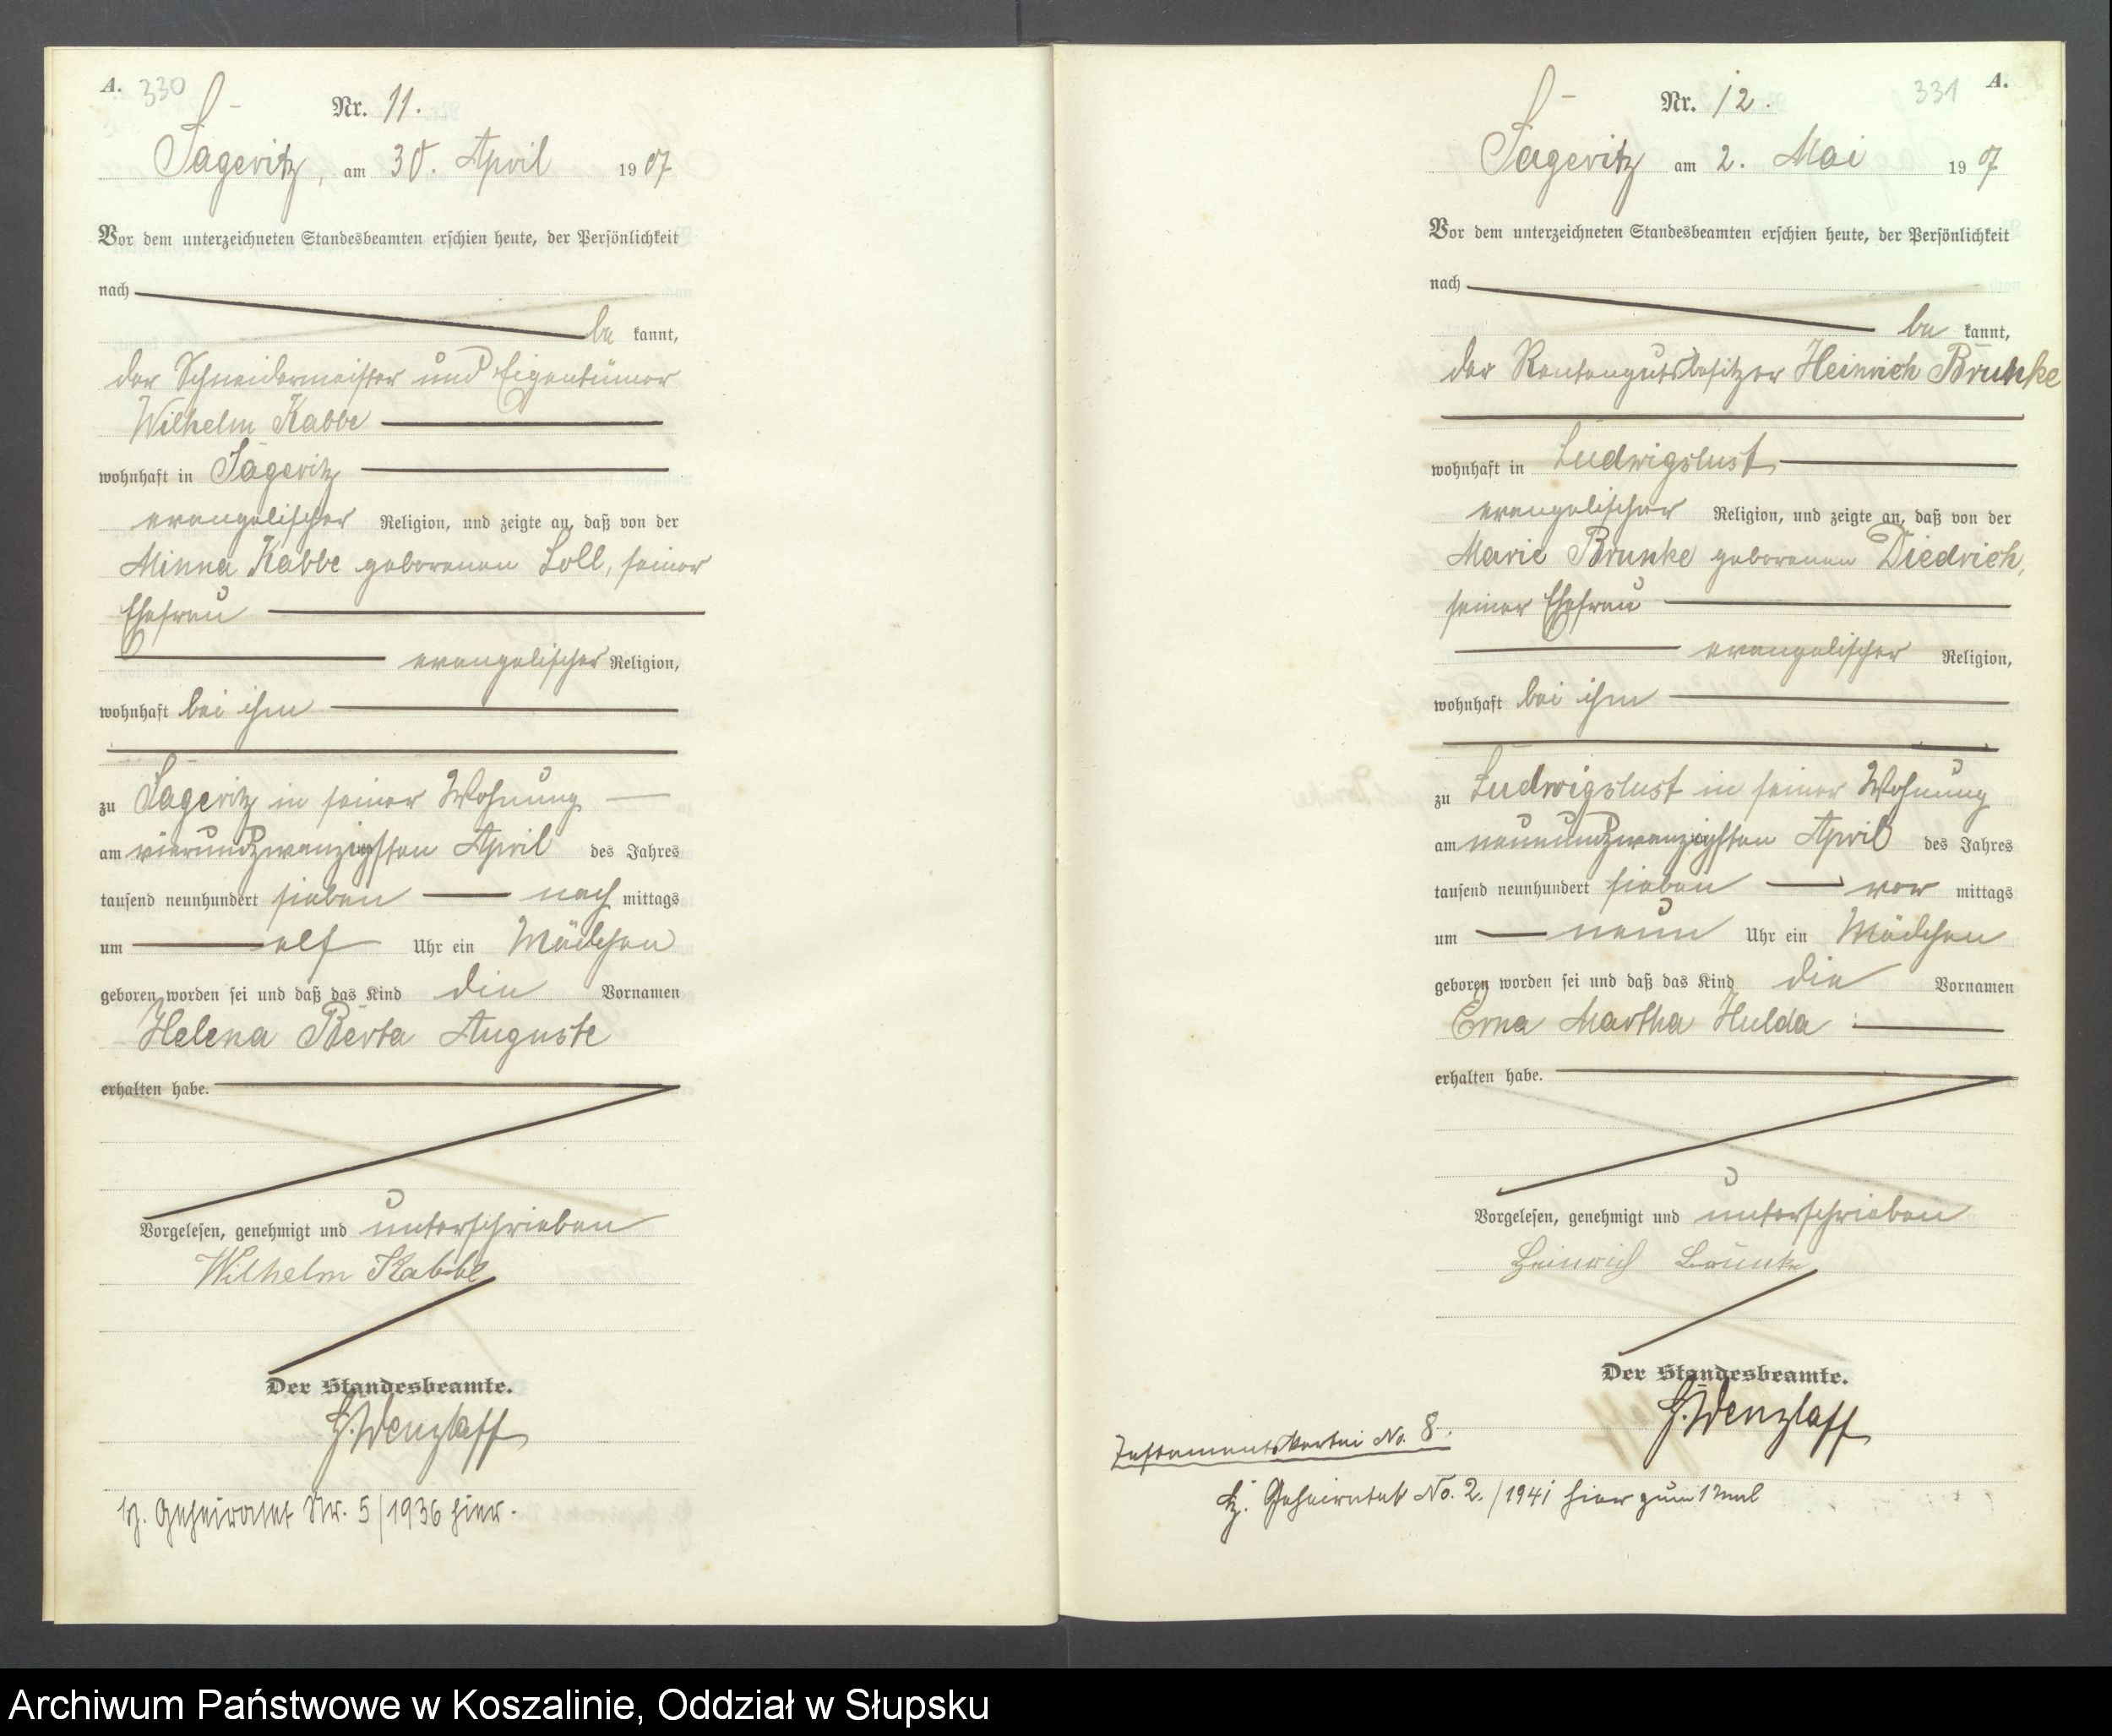 A. 330
Nr. 11.
Sageritz, am 30. April 1907
Vor dem unterzeichneten Standesbeamten erschien heute, der Persönlichkeit
nach
be kannt,
der Schneidermeister und Eigentümer
Wilhelm Kabbe
wohnhaft in Sageritz
evangelischer Religion, und zeigte an, daß von der
Minna Kabbe geborenen Loll, seiner
Ehefrau
evangelischer Religion,
wohnhaft bei ihm
zu Sageritz in seiner Wohnung
am vierundzwanzigsten April des Jahres
tausend neunhundert sieben nach mittags
um elf Uhr ein Mädchen
geboren worden sei und daß das Kind die Vornamen
Helena Berta Auguste
erhalten habe.
Vorgelesen, genehmigt und unterschrieben
Wilhelm Kabbe
Der Standesbeamte.
Wenzlaff
Geheiratet Nr. 5/1936 hier.
331 A.
Nr. 12.
Sageritz am 2. Mai 1907
Vor dem unterzeichneten Standesbeamten erschien heute, der Persönlichkeit
nach
be kannt,
der Rentengutsbesitzer Heinrich Brunke
wohnhaft in Ludwigslust
evangelischer Religion, und zeigte an, daß von der
Marie Brunke geborenen Diedrich,
seiner Ehefrau
evangelischer Religion,
wohnhaft bei ihm
zu Ludwigslust in seiner Wohnung
am neunundzwanzigsten April des Jahres
tausend neunhundert sieben vor mittags
um neun Uhr ein Mädchen
geboren worden sei und daß das Kind die Vornamen
Erna Martha Hulda
erhalten habe.
Vorgelesen, genehmigt und unterschrieben
Heinrich Brunke
Der Standesbeamte.
Wenzlaff
Testamentskartei No. 8.
Geheiratet No. 2./1941 hier zum 1 mal
Archiwum Państwowe w Koszalinie, Oddział w Słupsku